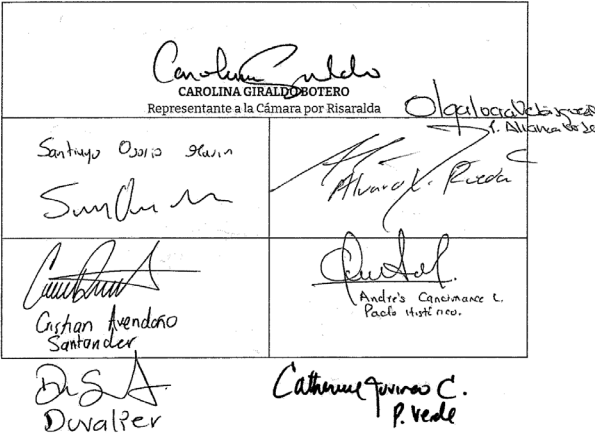 Carolina Giraldo
CAROLINA GIRALDO BOTERO
Representante a la Cámara por Risaralda
Olga Lucia Velásquez
P. Alianza Verde
Santiago Osorio Marin
Alvaro L. Rueda
Cristian Avendaño
Santander
Andrés Cancimance L.
Pacto Histórico.
Duvalier
Catherine Juvinao C.
P. Verde